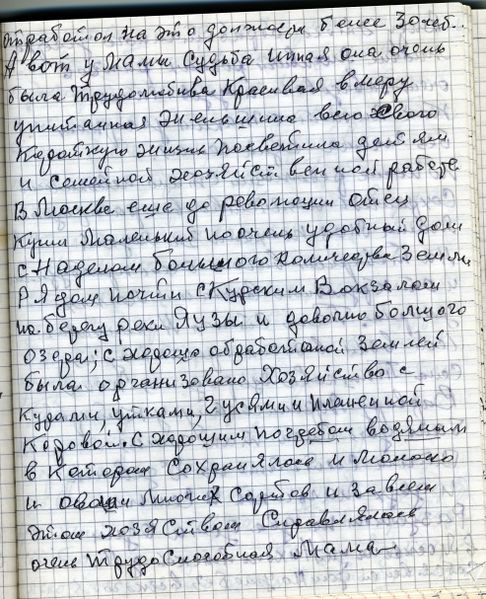 отработал на это должности более 30 леб..
А вот у Мамы судьба иная она очень
была трудолюбива Красивая в меру
упитанная Женьшина всю свою
Короткую жизнь посветила детям
и семейной хозяйственной работе
В Москве еще до революции отец
Купил Маленький но очень удобный Дом
с Наделом большого количества Земли
Рядом почти с Курским Вокзалом
на берегу реки Яузы и довольно большого
озера; с хорошо обработаной Землей
была организовано Хозяйство с
Курами, утками, Гусями и племенной
Коровой. С хорошим погребом водяным
в котором Сохранялось и Молоко
и овощи многих Сортов и за всем
этим хозяством Справлялась
очень трудоспособная Мама